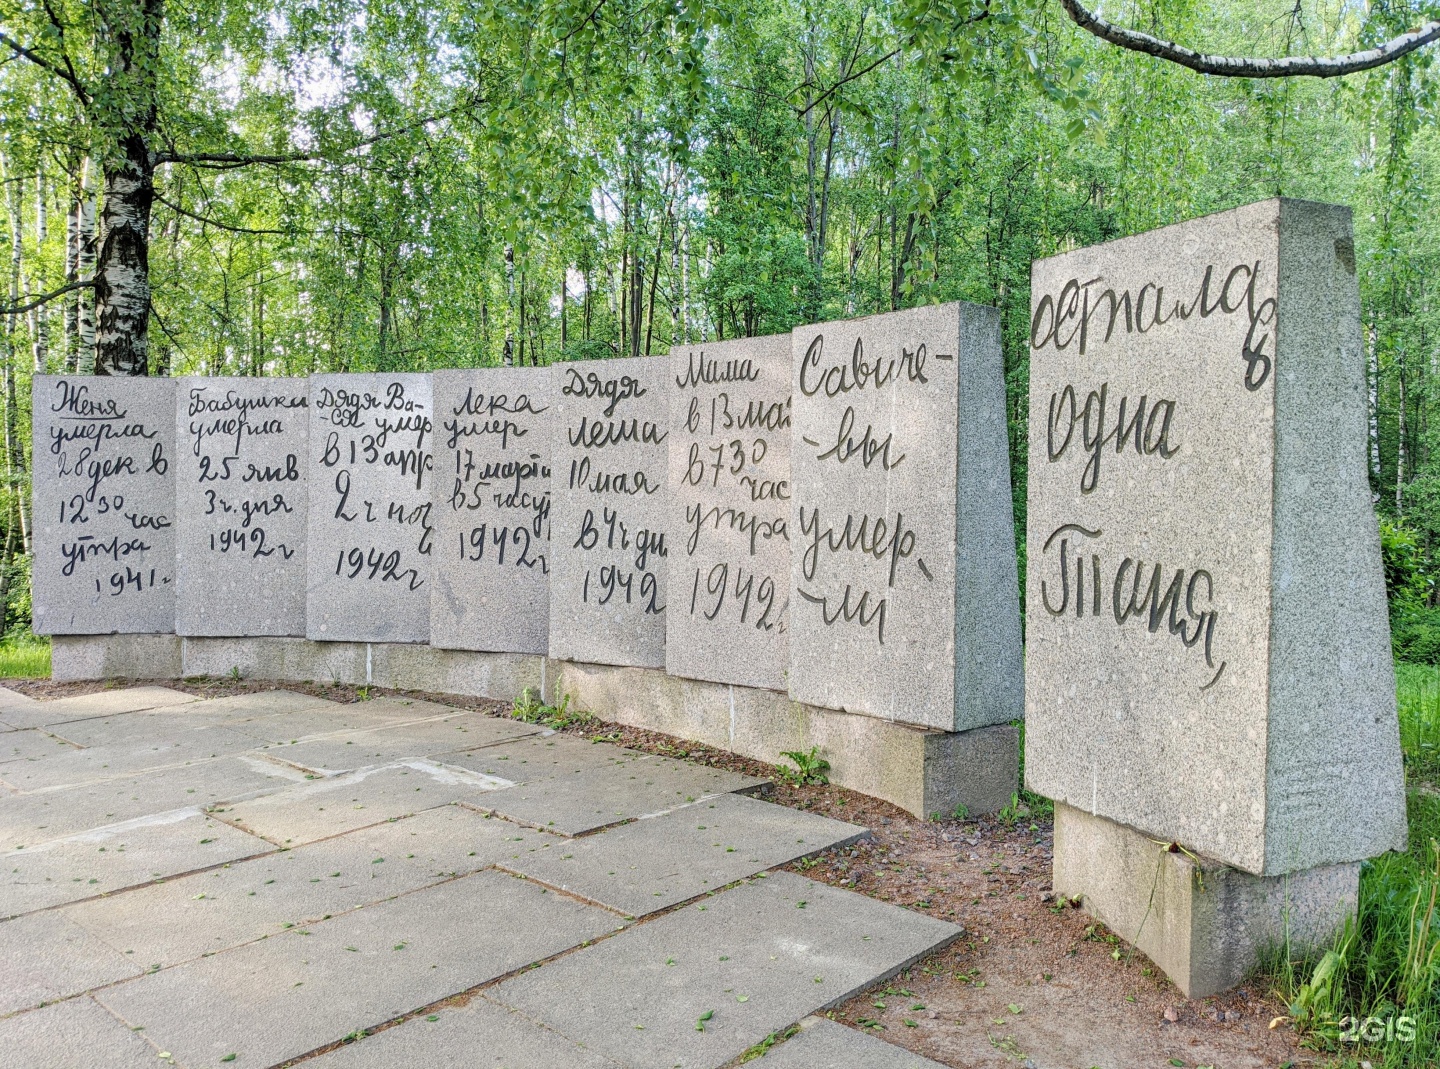 Женя
умерла
28 дек в
12 30 час
утра
1941 г
Бабушка
умерла
25 янв.
3 ч. дня
1942 г
Дядя Ва-
-ся умер
в 13 апр
2 ч ноч
1942 г
Лека
умер
17 марта
в 5 час ут
1942 г
Дядя
Леша
10 мая
в 4 ч дн
1942
Мама
в 13 мая
в 7 30
час
утра
1942 г
Савиче-
-вы
умер-
-ли
осталась
одна
Таня
2GIS